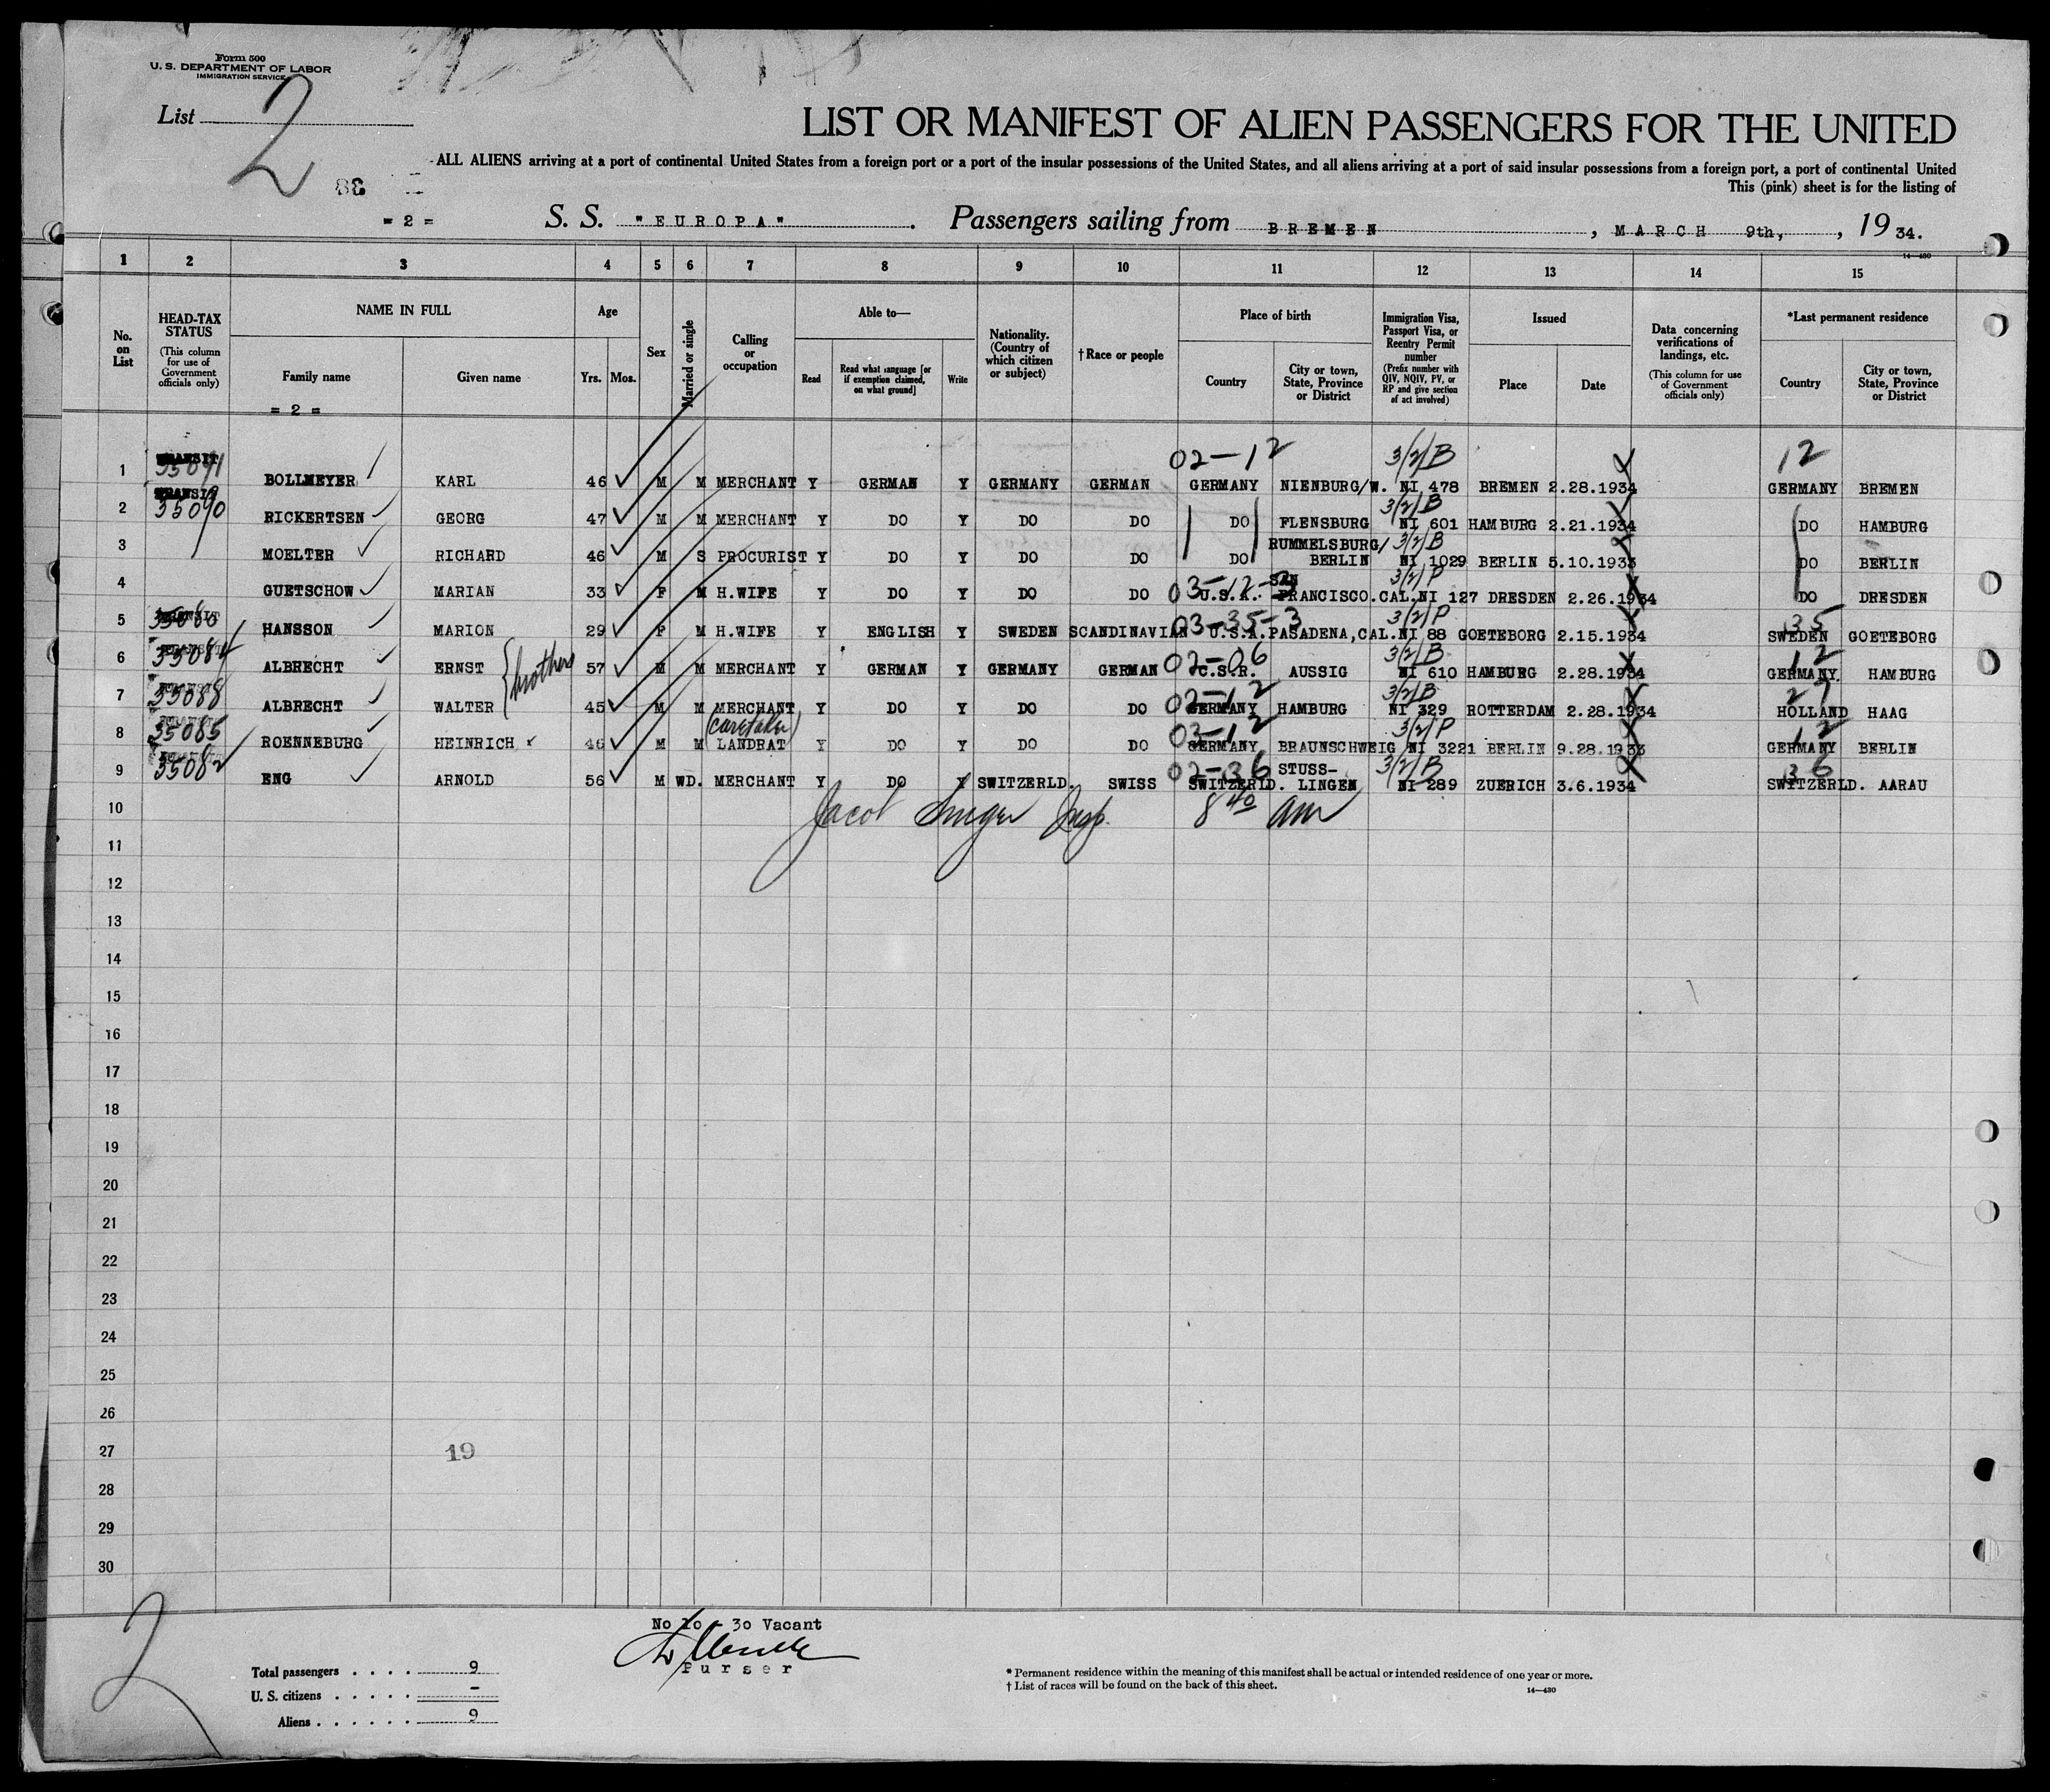 Form 500
U. S. DEPARTMENT OF LABOR
IMMIGRATION SERVICE
List 2
LIST OR MANIFEST OF ALIEN PASSENGERS FOR THE UNITED
ALL ALIENS arriving at a port of continental United States from a foreign port or a port of the insular possessions of the United States, and all aliens arriving at a port of said insular possessions from a foreign port, a port of continental United
This (pink) sheet is for the listing of
= 2 = S. S. "EUROPA" . Passengers sailing from BREMEN , MARCH 9th, , 19 34.
14—430
1 2 3 4 5 6 7 8 9 10 11 12 13 14 15
No. on List
HEAD-TAX STATUS (This column for use of Government officials only)
NAME IN FULL
Family name Given name
= 2 =
Age
Yrs. Mos.
Sex
Married or single
Calling or occupation
Able to—
Read Read what language [or if exemption claimed, on what ground] Write
Nationality. (Country of which citizen or subject)
†Race or people
Place of birth
Country City or town, State, Province or District
Immigration Visa, Passport Visa, or Reentry Permit number (Prefix number with QIV, NQIV, PV, or RP and give section of act involved)
Issued
Place Date
Data concerning verifications of landings, etc. (This column for use of Government officials only)
*Last permanent residence
Country City or town, State, Province or District
02-12 3/2/B 12
1 TRANSIT 35091 BOLLMEYER KARL 46 M M MERCHANT Y GERMAN Y GERMANY GERMAN GERMANY NIENBURG/W. NI 478 BREMEN 2.28.1934 GERMANY BREMEN
3/2/B
2 TRANSIT 35090 RICKERTSEN GEORG 47 M M MERCHANT Y DO Y DO DO DO FLENSBURG NI 601 HAMBURG 2.21.1934 DO HAMBURG
RUMMELSBURG/ 3/2/B
3 MOELTER RICHARD 46 M S PROCURIST Y DO Y DO DO DO BERLIN NI 1029 BERLIN 5.10.1933 DO BERLIN
03-12-3 SAN 3/2/P
4 GUETSCHOW MARIAN 33 F M H.WIFE Y DO Y DO DO U.S.A. FRANCISCO.CAL. NI 127 DRESDEN 2.26.1934 DO DRESDEN
03-35-3 3/2/P 35
5 35080 HANSSON MARION 29 F M H.WIFE Y ENGLISH Y SWEDEN SCANDINAVIAN U.S.A. PASADENA,CAL. NI 88 GOETEBORG 2.15.1934 SWEDEN GOETEBORG
02-06 3/2/B 12
6 35084 ALBRECHT ERNST brothers 57 M M MERCHANT Y GERMAN Y GERMANY GERMAN C.S.R. AUSSIG NI 610 HAMBURG 2.28.1934 GERMANY. HAMBURG
02-12 3/2/B 27
7 35088 ALBRECHT WALTER 45 M M MERCHANT Y DO Y DO DO GERMANY HAMBURG NI 329 ROTTERDAM 2.28.1934 HOLLAND HAAG
(caretaker) 03-12 3/2/P 12
8 35085 ROENNEBURG HEINRICH 46 M M LANDRAT Y DO Y DO DO GERMANY BRAUNSCHWEIG NI 3221 BERLIN 9.28.1933 GERMANY BERLIN
02-36 STUSS- 3/2/B 36
9 35082 ENG ARNOLD 56 M WD. MERCHANT Y DO Y SWITZERLD. SWISS SWITZERLD. LINGEN NI 289 ZUERICH 3.6.1934 SWITZERLD. AARAU
10 Jacob Singer Insp. 8 40 am
11
12
13
14
15
16
17
18
19
20
21
22
23
24
25
26
27 19
28
29
30
2
No 10 - 30 Vacant
Purser
Total passengers . . . . 9
U. S. citizens . . . . . -
Aliens . . . . . . 9
* Permanent residence within the meaning of this manifest shall be actual or intended residence of one year or more.
† List of races will be found on the back of this sheet.
14—430